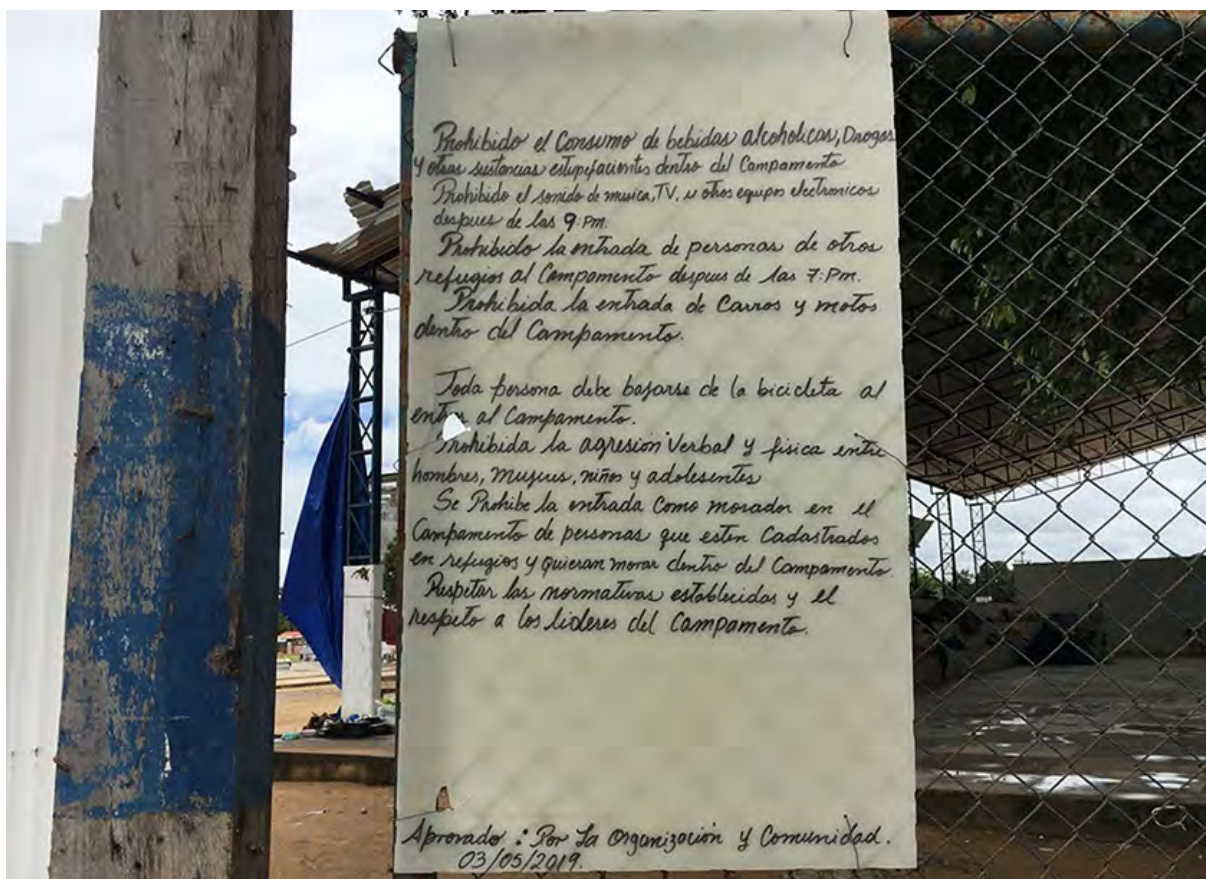 Prohibido el Consumo de bebidas alcoholicas, Drogas
Y otras sustancias estupefacientes dentro del Campamento
Prohibido el sonido de musica, TV, u otros equipos electronicos
despues de las 9:Pm.
Prohibido la entrada de personas de otros
refugios al Campamento despues de las 7:Pm.
Prohibida la entrada de Carros y motos
dentro del Campamento.
Toda persona debe bajarse de la bicicleta al
entrar al Campamento.
Prohibida la agresión Verbal y fisica entre
hombres, Mujeres, niños y adolesentes
Se Prohibe la entrada Como morador en el
Campamento de personas que esten Cadastrados
en refugios y quieran morar dentro del Campamento.
Respetar las normativas establecidas y el
respeto a los lideres del Campamento.
Aprovado : Por La Organización y Comunidad.
03/05/2019.